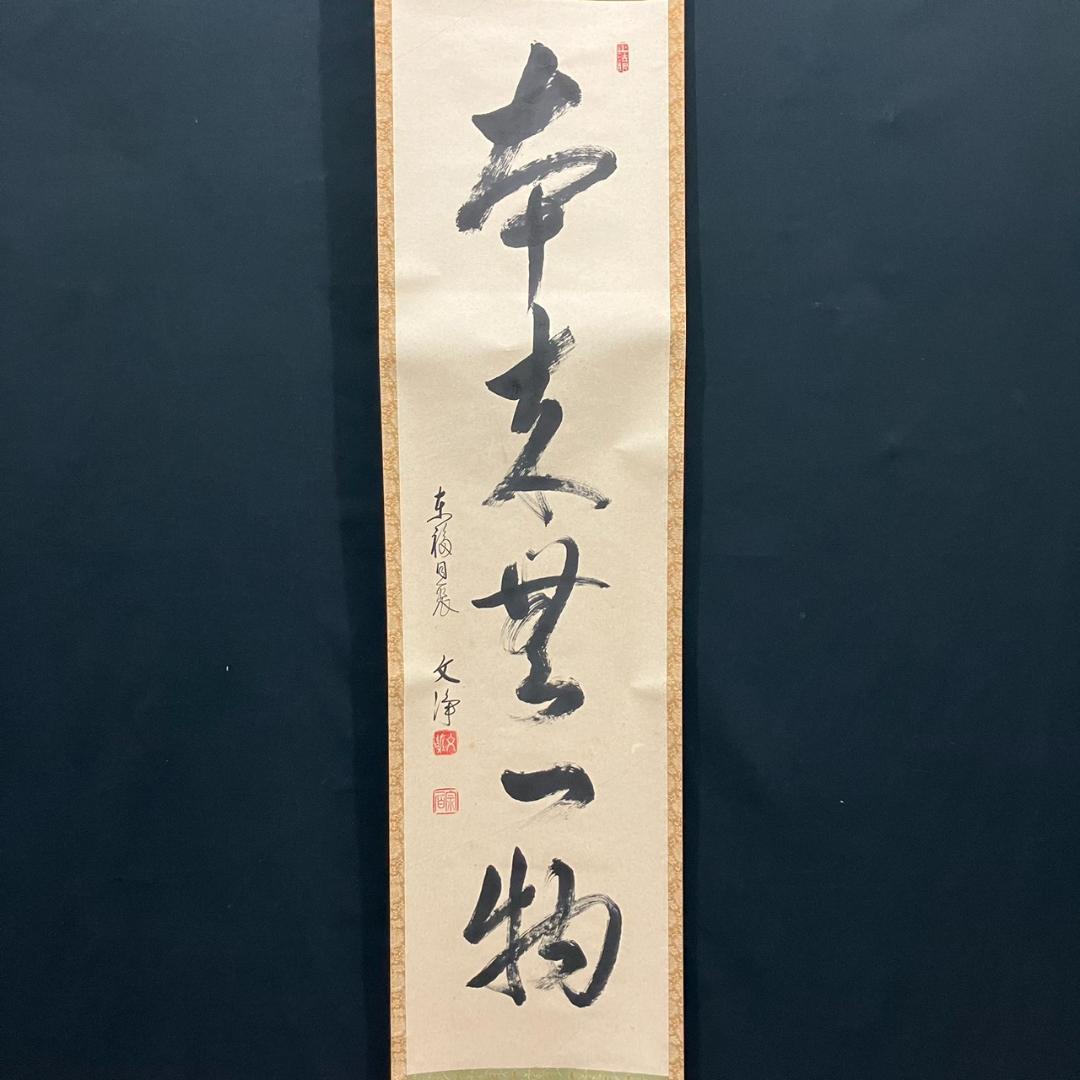 本来無一物
東福目裏 文浄